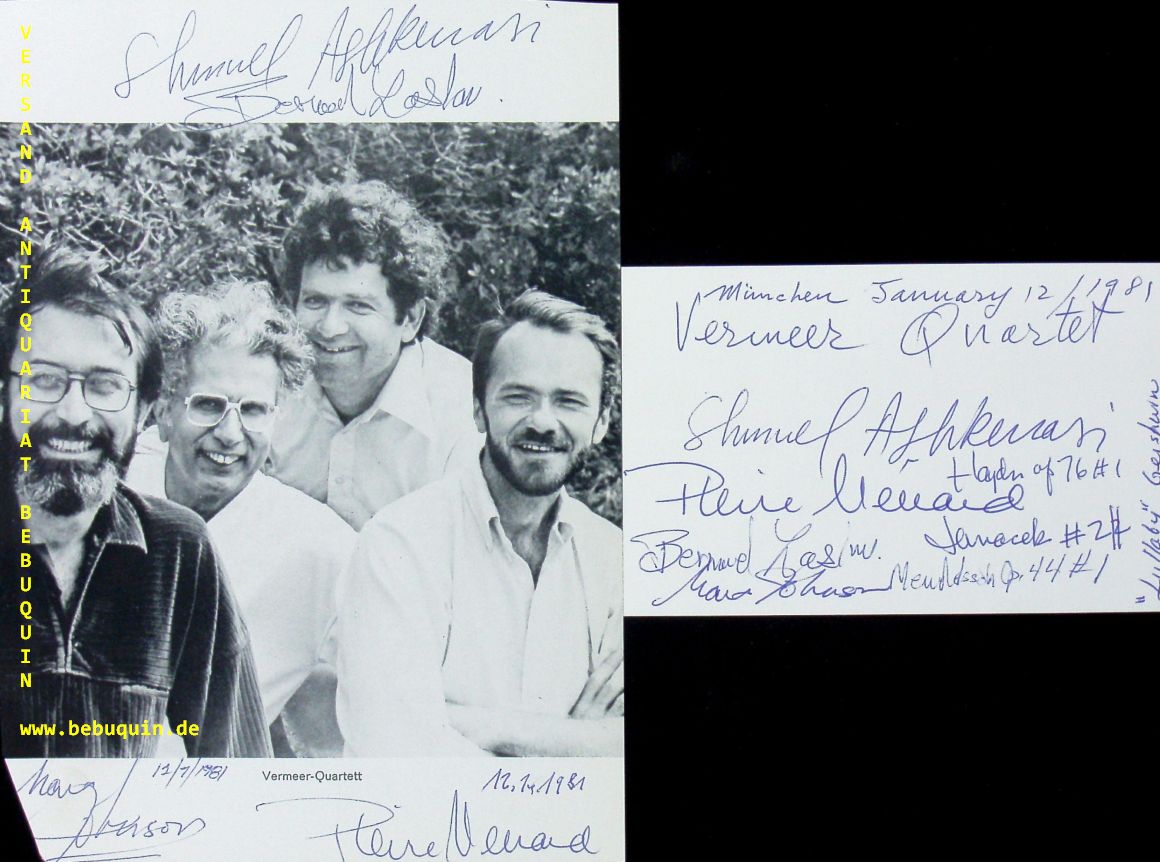 Shmuel Ashkenasi
Bernard Zaslav.
VERSAND ANTIQUARIAT BEBUQUIN
www.bebuquin.de
Marc Johnson
12/1/1981
Vermeer-Quartett
12.1.1981
Pierre Menard
München January 12/1981
Vermeer Quartet
Shmuel Ashkenasi
Haydn op 76 #1
Pierre Menard
Janacek #2
Bernard Zaslav.
Marc Johnson
Mendelssohn Op. 44 #1
"Lullaby" Gershwin